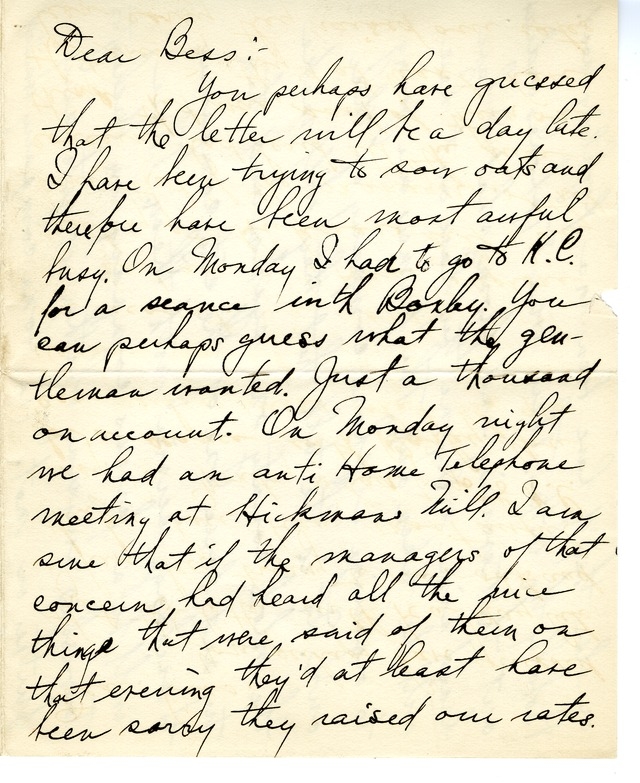 Dear Bess:-
You perhaps have guessed
that the letter will be a day late.
I have been trying to sow oats and
therefore have been most awful
busy. On Monday I had to go to K.C.
for a seance with Boxley. You
can perhaps guess what the gen-
tleman wanted. Just a thousand
on account. On Monday night
we had an anti Home Telephone
meeting at Hickmans Mill. I am
sure that if the managers of that
concern had heard all the nice
things that were said of them on
that evening they'd at least have
been sorry they raised our rates.